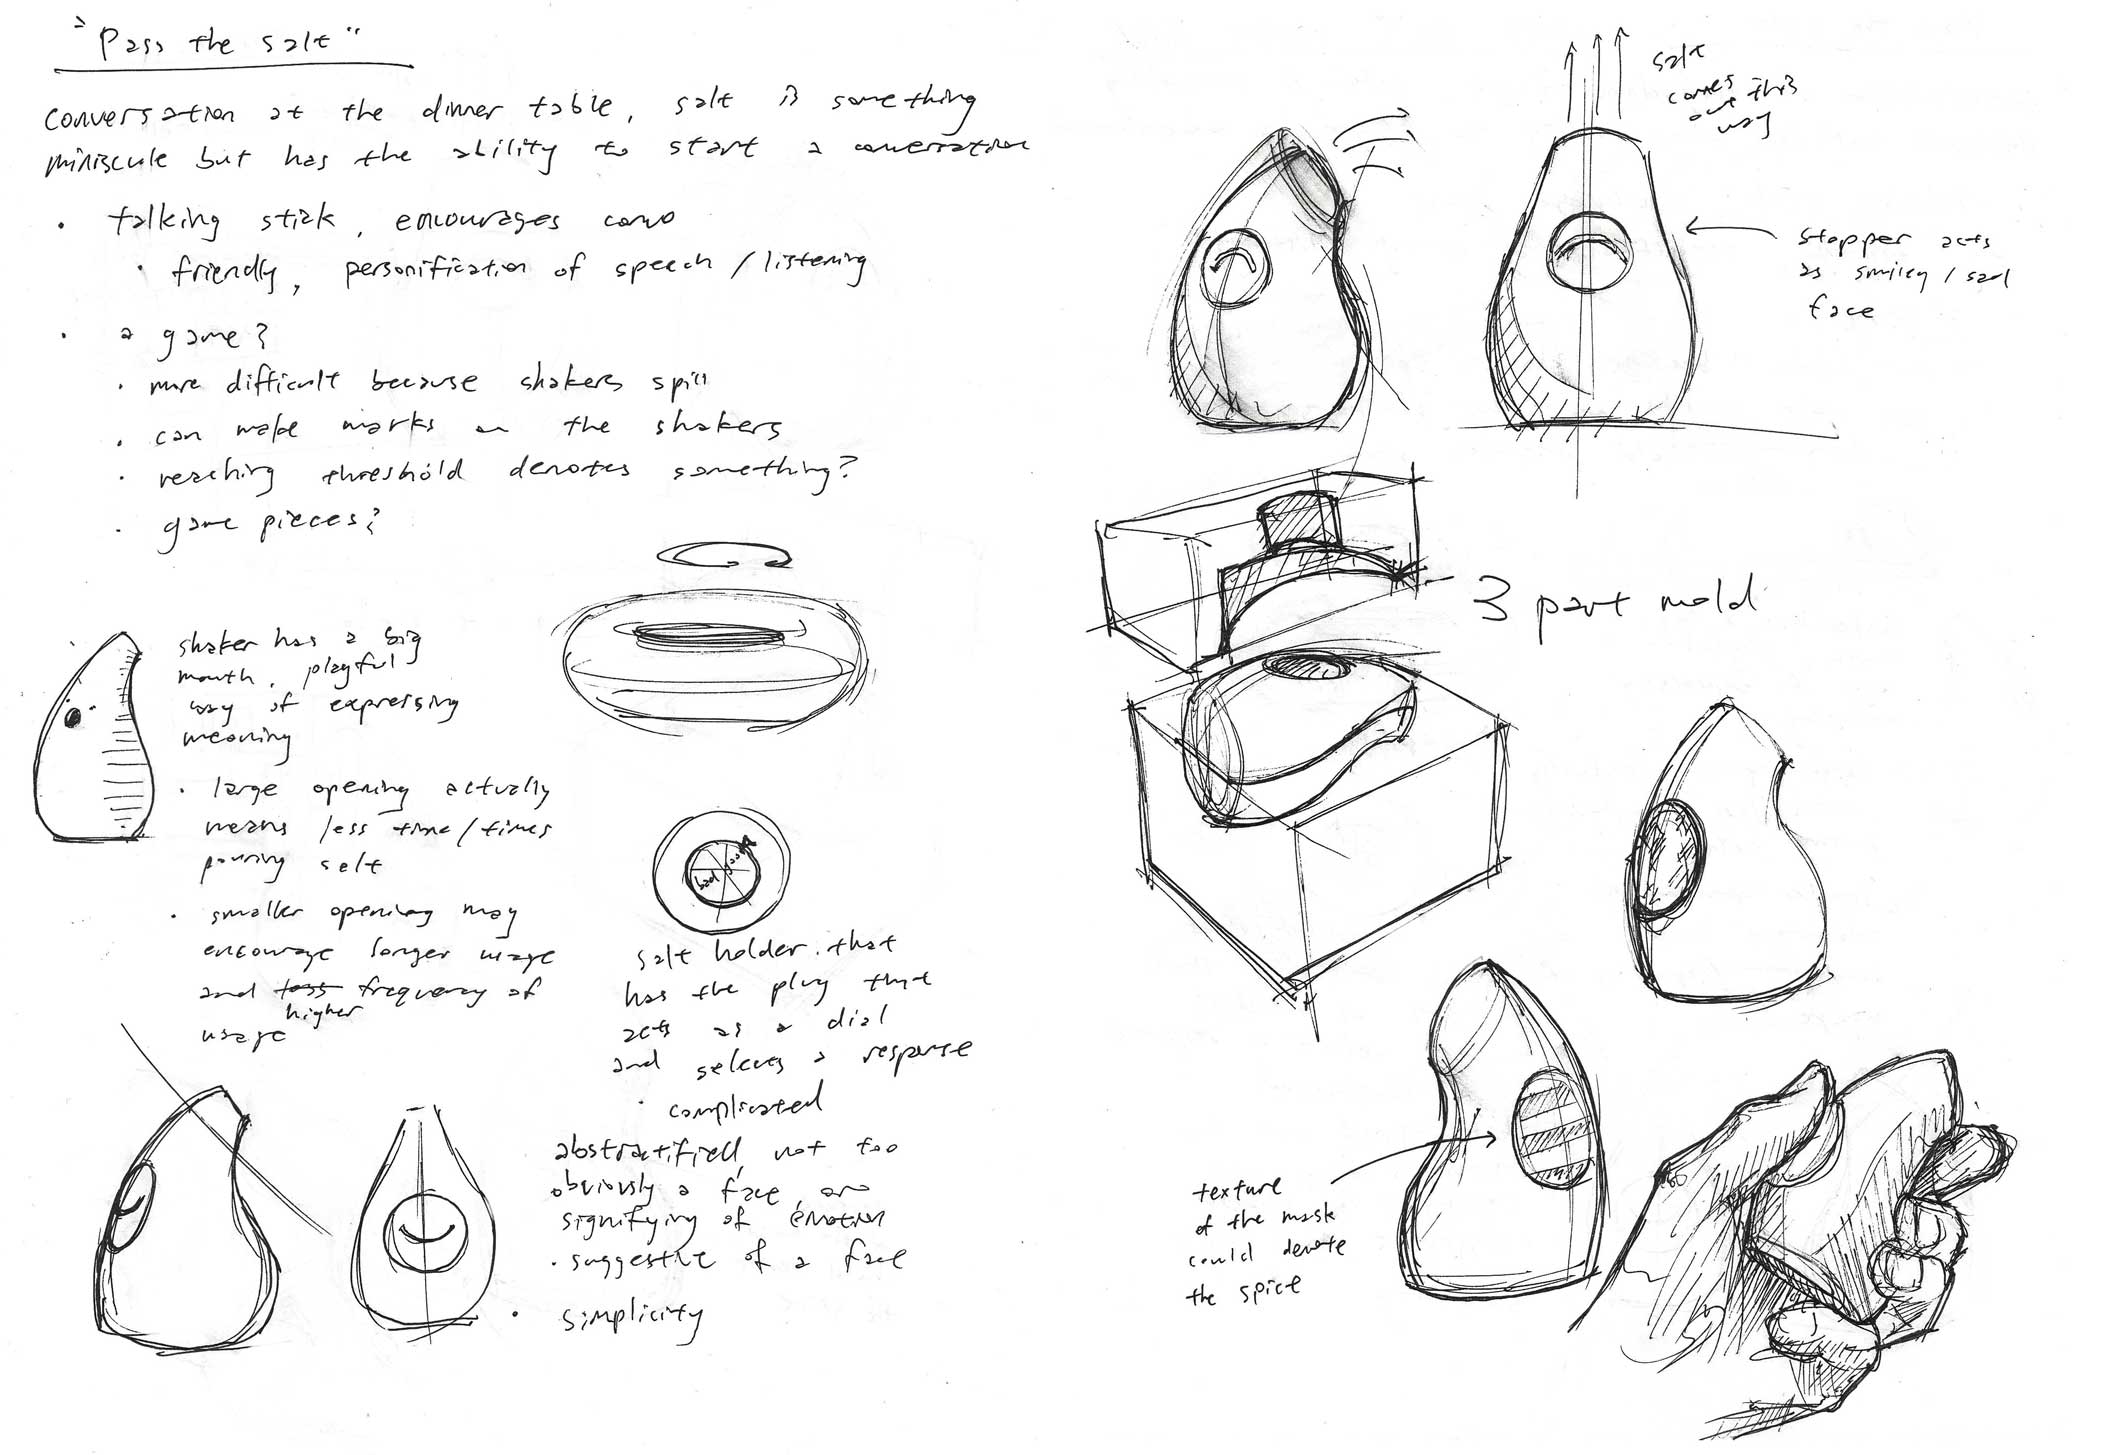 "Pass the salt"
conversation at the dinner table, salt is something
miniscule but has the ability to start a conversation
· talking stick, encourages convo
· friendly, personification of speech / listening
· a game?
· more difficult because shakers spill
· can make marks on the shakers
· reaching threshold denotes something?
· game pieces?
shaker has a big
mouth, playful
way of expressing
meaning
· large opening actually
means less time/times
pouring salt
· smaller opening may
encourage longer usage
and less frequency of
higher
usage
bad good
salt holder that
has the plug that
acts as a dial
and selects a response
· complicated
abstractified, not too
obviously a face,
signifying of emotion
· suggestive of a face
· simplicity
salt
comes
out this
way
stopper acts
as smiley / sad
face
3 part mold
texture
of the mask
could denote
the spice